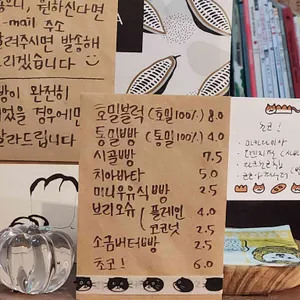 으니, 원하신다면
e-mail 주소
려주시면 발송해
리겠습니다
빵이 완전히
었을 경우에만
말라드립니다
호밀브럭 (호밀100%) 8.0
통밀빵 (통밀100%) 4.0
시골빵 7.5
치아바타 5.0
미니우유식빵 2.5
브리오슈 플레인 4.0
코코넛 2.5
소금버터빵 2.5
쵸코! 6.0
쵸코!